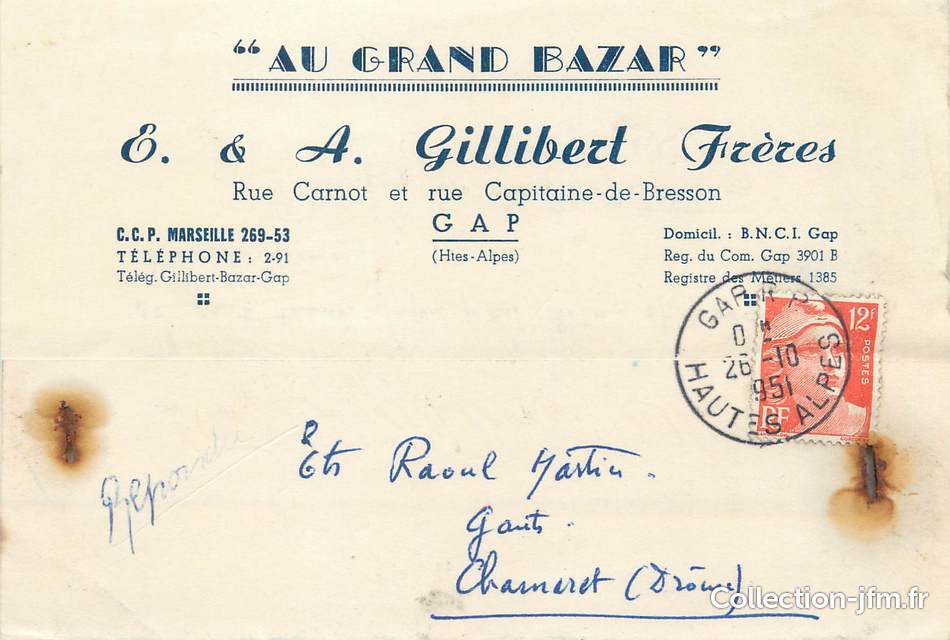 “AU GRAND BAZAR”
E. & A. Gillibert Frères
Rue Carnot et rue Capitaine-de-Bresson
GAP
(Htes-Alpes)
C.C.P. MARSEILLE 269-53
TÉLÉPHONE : 2-91
Télég. Gillibert-Bazar-Gap
Domicil. : B.N.C.I. Gap
Reg. du Com. Gap 3901 B
Registre des Métiers 1385
GAP R P
26 -10
951
HAUTES ALPES
12F
POSTES
RF
Répondu
Ets Raoul Martin.
Gants.
Chamaret (Drôme)
Collection-jfm.fr